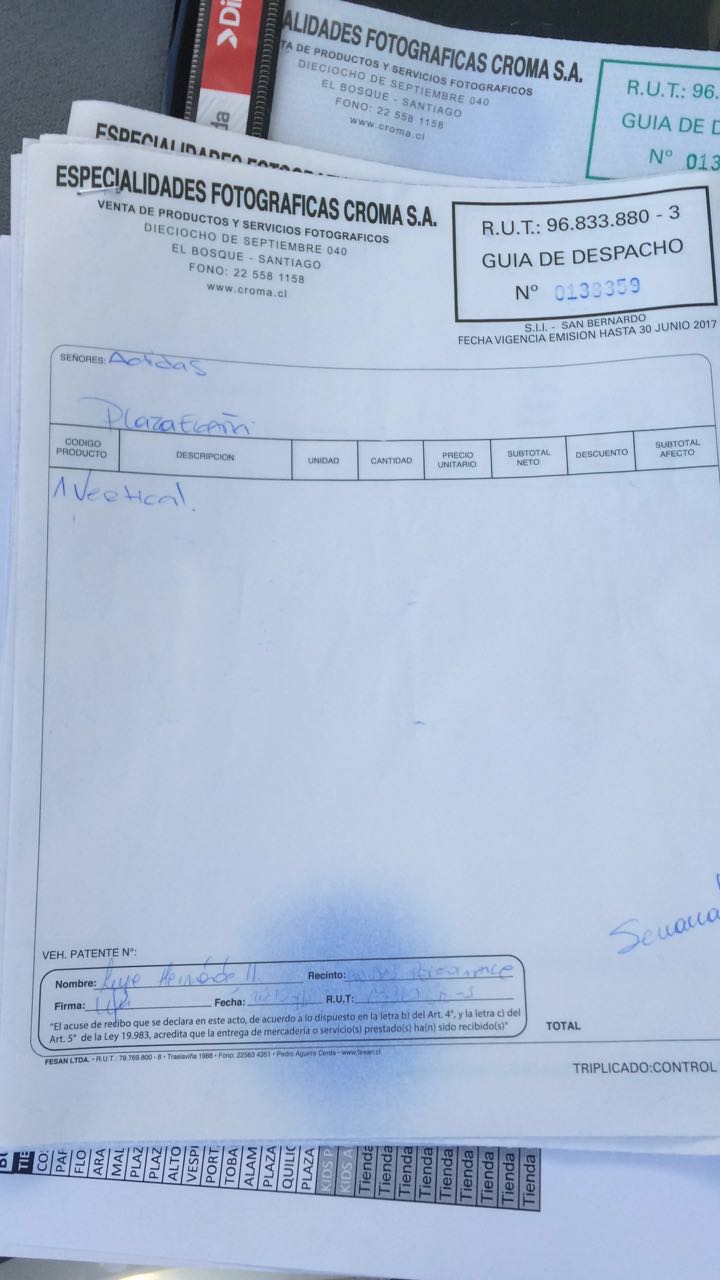 >Di
ALIDADES FOTOGRAFICAS CROMA S.A.
TA DE PRODUCTOS Y SERVICIOS FOTOGRAFICOS
DIECIOCHO DE SEPTIEMBRE 040
EL BOSQUE - SANTIAGO
FONO: 22 558 1158
www.croma.cl
R.U.T.: 96.
GUIA DE D
Nº 013
da
ESPECIALIDADES FOTOGRAFICAS CROMA S.A.
VENTA DE PRODUCTOS Y SERVICIOS FOTOGRAFICOS
DIECIOCHO DE SEPTIEMBRE 040
EL BOSQUE - SANTIAGO
FONO: 22 558 1158
www.croma.cl
R.U.T.: 96.833.880 - 3
GUIA DE DESPACHO
Nº 0138359
S.I.I. - SAN BERNARDO
FECHA VIGENCIA EMISION HASTA 30 JUNIO 2017
SEÑORES: Adidas
Plaza Egaña
CODIGO PRODUCTO DESCRIPCION UNIDAD CANTIDAD PRECIO UNITARIO SUBTOTAL NETO DESCUENTO SUBTOTAL AFECTO
1 Vertical.
Semana
VEH. PATENTE Nº:
Nombre: Hernández Recinto:
Firma: Fecha: R.U.T.:
"El acuse de recibo que se declara en este acto, de acuerdo a lo dispuesto en la letra b) del Art. 4°, y la letra c) del
Art. 5° de la Ley 19.983, acredita que la entrega de mercadería o servicio(s) prestado(s) ha(n) sido recibido(s)"
TOTAL
FESAN LTDA. • R.U.T.: 79.769.800 - 8 • Traslaviña 1988 • Fono: 22563 4351 • Pedro Aguirre Cerda • www.fesan.cl
TRIPLICADO:CONTROL
TIE
CO
PAF
FLO
ARA
MAL
PLAZ
PLAZ
ALTO
VESPI
PORT
TOBA
ALAM
PLAZA
QUILIC
PLAZA
KIDS P
KIDS A
Tienda
Tienda
Tienda
Tienda
Tienda
Tienda
Tienda
Tienda
Tienda